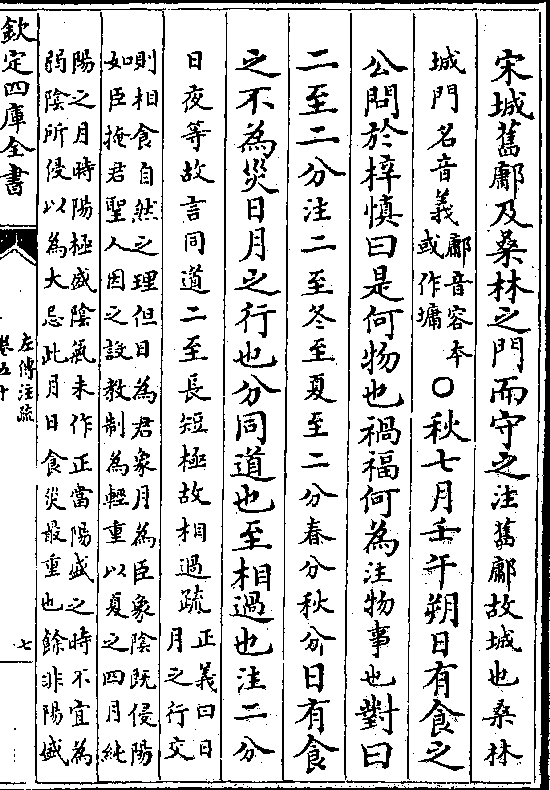 宋城舊鄘及桑林之門而守之注舊鄘故城也桑林
城門名音義鄘音容本
或作墉○秋七月壬午朔日有食之
公問於梓慎曰是何物也禍福何為注物事也對曰
二至二分注二至冬至夏至二分春分秋分日有食
之不為災日月之行也分同道也至相過也注二分
日夜等故言同道二至長短極故相過疏正義曰日
月之行交
則相食自然之理但日為君象月為臣象陰既侵陽
如臣掩君聖人因之設教制為輕重以夏之四月純
陽之月時陽極盛陰氣未作正當陽盛之時不宜為
弱陰所侵以為大忌此月日食災最重也餘非陽盛
欽定四庫全書
左傳注疏
卷五十
七